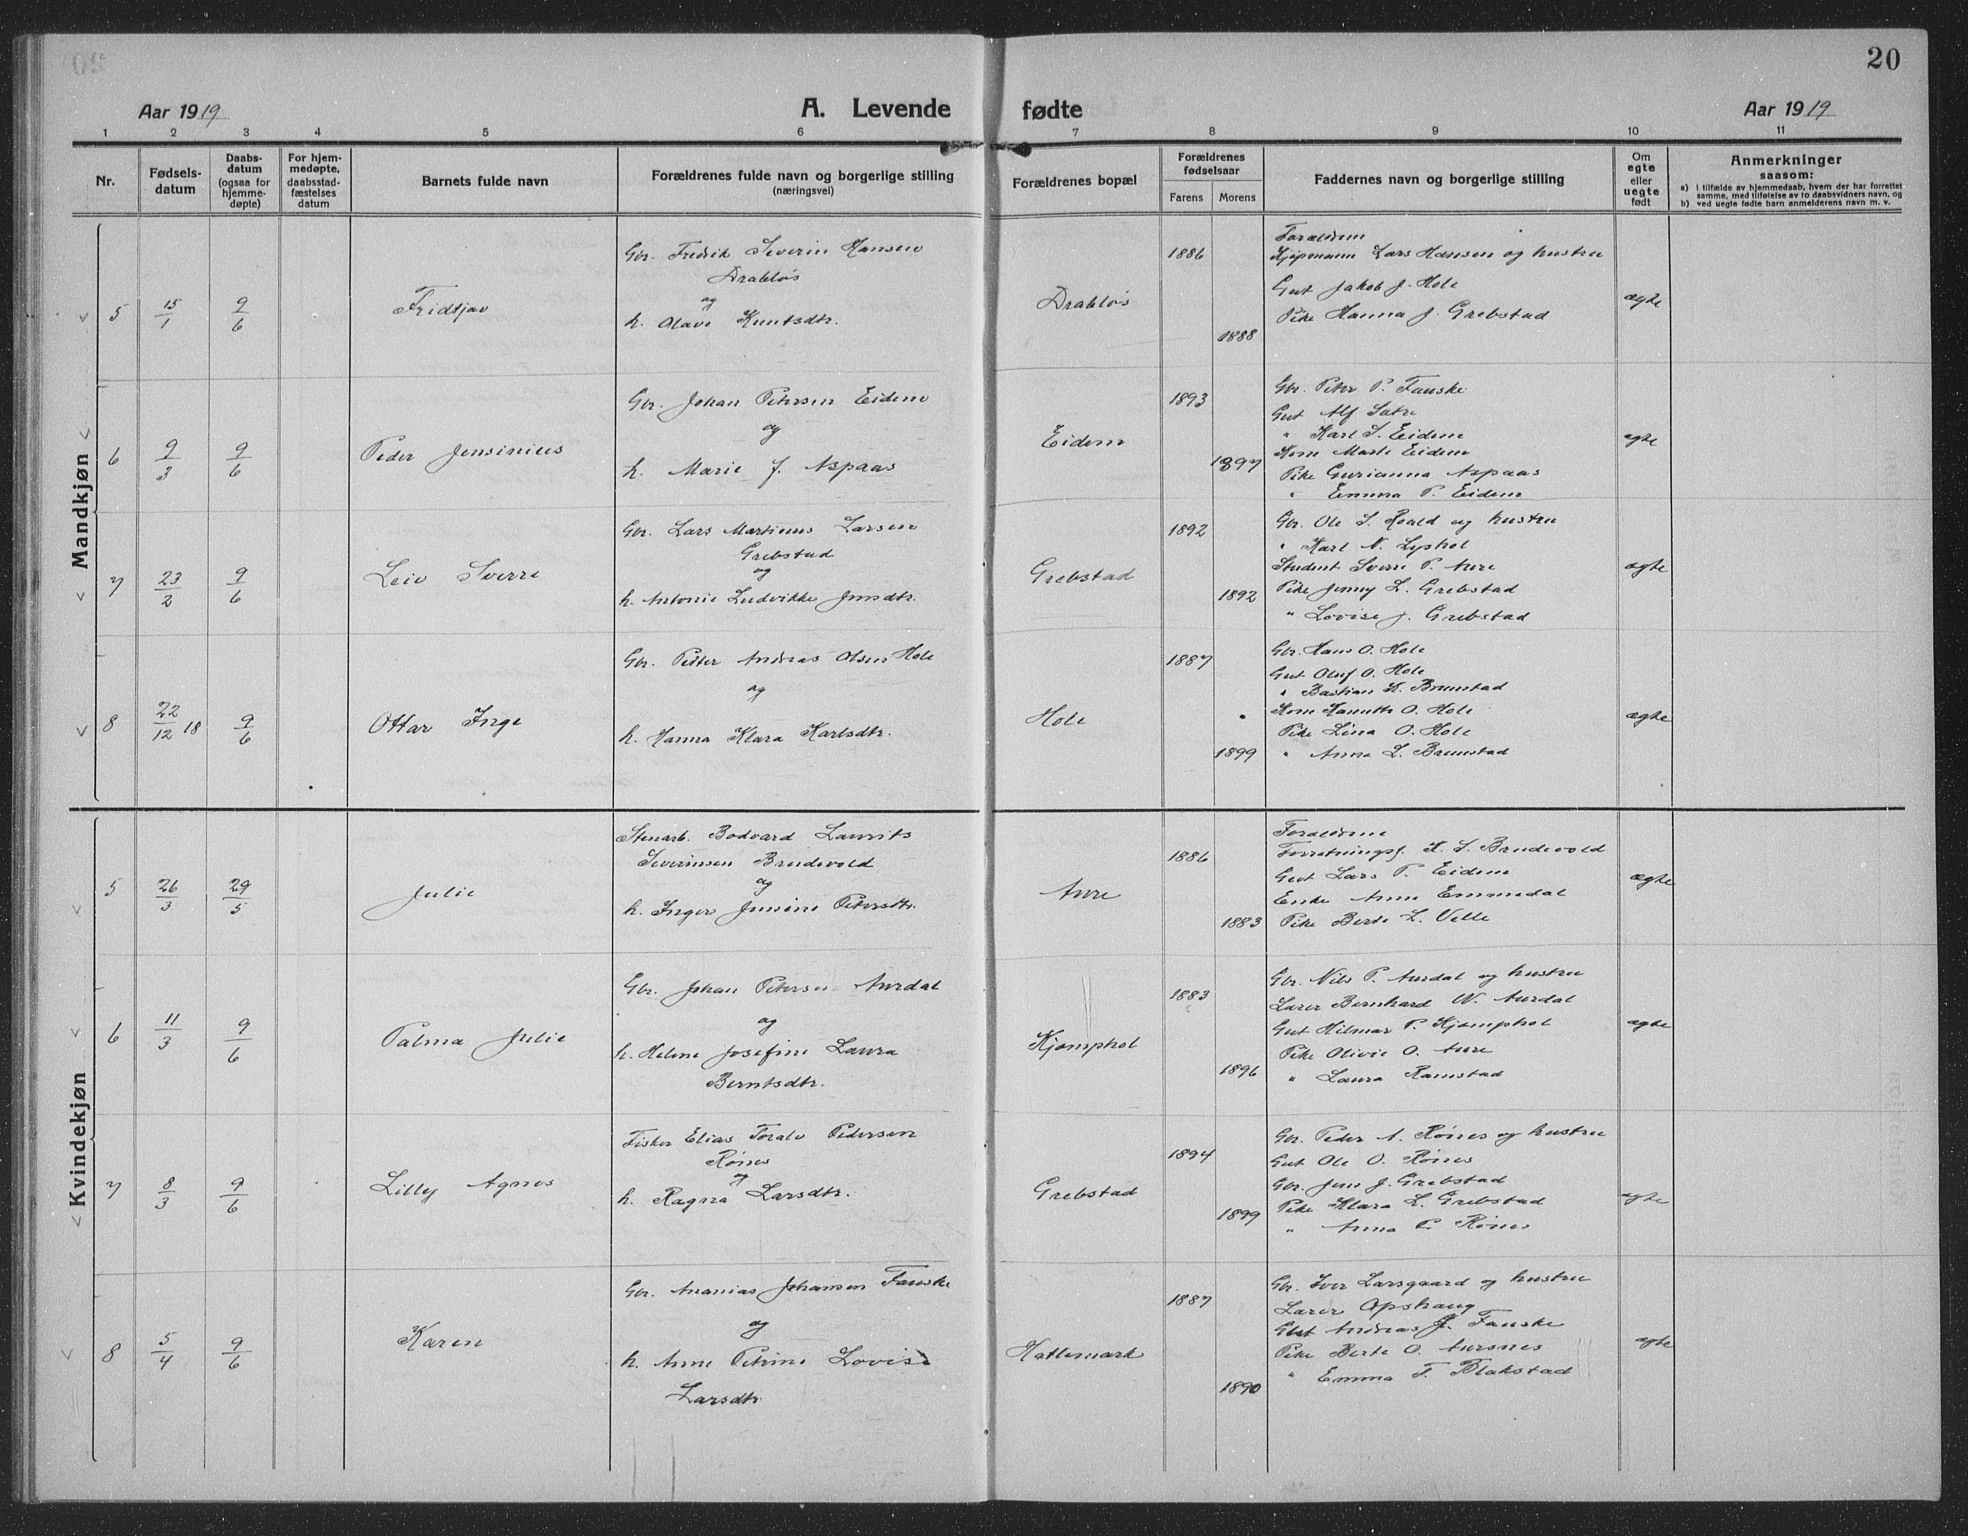 20
Aar 1919
A. Levende
fødte
Aar 1919
1 2 3 4 5 6 7 8 9 10 11
Nr.
Fødsels-
datum
Daabs-
datum
(ogsaa for
hjemme-
døpte)
For hjem-
medøpte,
daabsstad-
fæstelses
datum
Barnets fulde navn
Forældrenes fulde navn og borgerlige stilling
(næringsvei)
Forældrenes bopæl
Forældrenes
fødselsaar
Farens Morens
Faddernes navn og borgerlige stilling
Om
egte
eller
uegte
født
Anmerkninger
saasom:
a) i tilfælde av hjemmedaab, hvem der har forrettet
samme, med tilføielse av to daabsvidners navn, og
b) ved uegte fødte barn anmelderens navn m. v.
Mandkjøn
5 15/1 9/6 Fridtjov
Gbr. Fredrik Severin Hansen
Drabløs
og
h. Olave Knutsdtr.
Drabløs
1886
1888
Forældrene
Kjøpmann Lars Hansen og hustru
Gut Jakob J. Hole
Pike Hanna J. Grebstad
ægte
6 9/3 9/6 Peder Jensinius
Gbr. Johan Petersen Eidem
og
h. Marie J. Aspaas
Eidem
1893
1897
Gbr. Peter P. Fauske
Gut Alf Satre
" Karl S. Eidem
Kone Marte Eidem
Pike Gurianna Aspaas
" Emma P. Eidem
ægte
7 23/2 9/6 Leiv Sverre
Gbr. Lars Martinus Larsen
Grebstad
og
h. Antonie Ludvikke Jensdtr.
Grebstad
1892
1892
Gbr. Ole S. Roald og hustru
" Karl N. Lyshol
Student Sverre P. Aure
Pike Jenny L. Grebstad
" Lovise J. Grebstad
ægte
8 22/12 18 9/6 Ottar Inge
Gbr. Petter Andreas Olsen Hole
og
h. Hanna Klara Karlsdtr.
Hole
1887
1899
Gbr. Hans O. Hole
Gut Oluf O. Hole
" Bastian K. Brunstad
Kone Hanette O. Hole
Pike Lina O. Hole
" Anna L. Brunstad
ægte
Kvindekjøn
5 26/3 29/5 Julie
Stenarb. Bodvard Laurits
Severinsen Brudevold
og
h. Inger Jensine Petersdtr.
Aure
1886
1883
Forældrene
Forretningsf. K. S. Brudevold
Gut Lars P. Eidem
Enke Anne Emmedal
Pike Berte L. Velle
ægte
6 11/3 9/6 Palma Julie
Gbr. Johan Petersen Aurdal
og
h. Helene Josefine Laura
Berntsdtr.
Kjæmphol
1883
1896
Gbr. Nils P. Aurdal og hustru
Lærer Bernhard W. Aurdal
Gut Hilmar P. Kjæmphol
Pike Olivie O. Aure
" Laura Ramstad
ægte
7 8/3 9/6 Lilly Agnes
Fisker Elias Toralv Pedersen
Rønes
og
h. Ragna Larsdtr.
Grebstad
1894
1899
Gbr. Peder A. Rønes og hustru
Gut Ole O. Rønes
Gbr. Jens J. Grebstad
Pike Klara L. Grebstad
" Anna P. Rønes
ægte
8 5/4 9/6 Karen
Gbr. Ananias Johansen Fauske
og
h. Anne Petrine Lovise
Larsdtr.
Hatlemark
1887
1890
Gbr. Iver Larsgaard og hustru
Lærer Opshaug
Gut Andreas J. Fauske
Pike Berte O. Aursnes
" Emma F. Blakstad
ægte